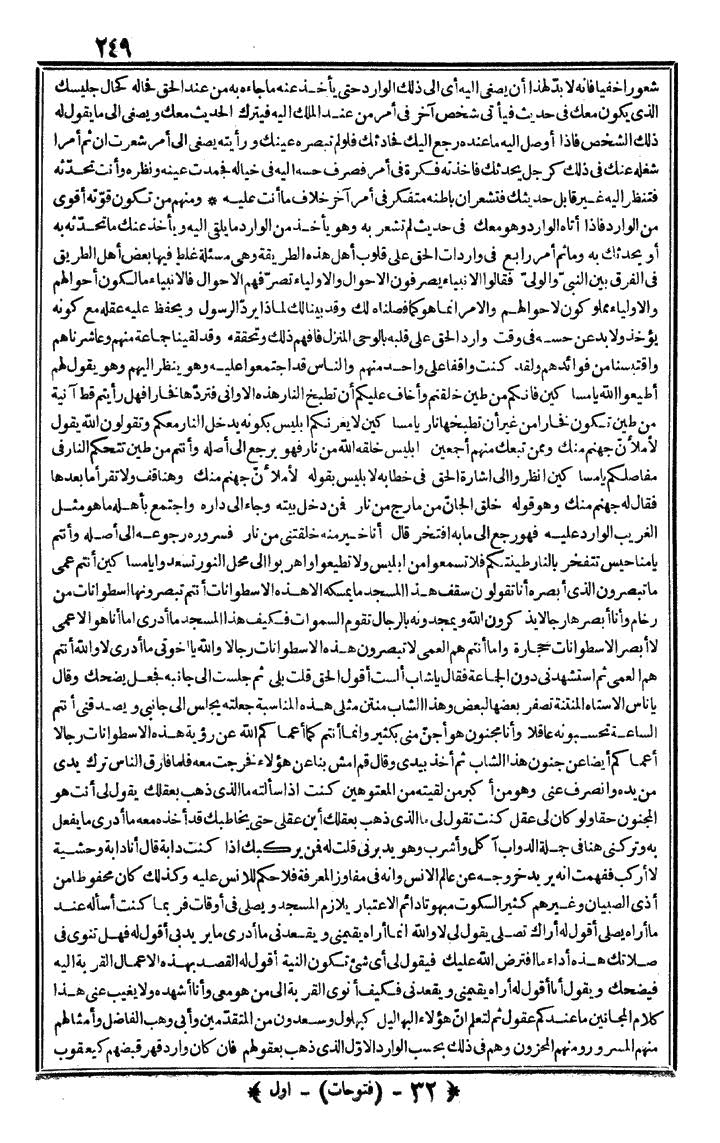 ٢٤٩
شعورا خفيا فانه لا بد لهذا أن يصغى اليه أى الى ذلك الوارد حتى يأخذ عنه ما جاءه به من عند الحق فحاله كحال جليسك
الذى يكون معك فى حديث فيأتى شخص آخر فى أمر من عند الملك اليه فيترك الحديث معك ويصغى الى ما يقول له
ذلك الشخص فاذا أوصل اليه ما عنده رجع اليك فحادثك فلو لم تبصره عينك ورأيته يصغى الى أمر شعرت ان ثم أمرا
شغله عنك فى ذلك كرجل يحدثك فأخذته فكرة فى أمر فصرف حسه اليه فى خياله فجمدت عينه ونظره وأنت تحدثه
فتنظر اليه غير قابل حديثك فتشعر ان باطنه متفكر فى أمر آخر خلاف ما أنت عليه * ومنهم من تكون قوته أقوى
من الوارد فاذا أتاه الوارد وهو معك فى حديث لم تشعر به وهو يأخذ من الوارد ما يلقى اليه ويأخذ عنك ما تحدثه به
أو يحدثك به وما ثم أمر رابع فى واردات الحق على قلوب أهل هذه الطريقة وهى مسئلة غلط فيها بعض أهل الطريق
فى الفرق بين النبىّ والولىّ فقالوا الانبياء يصرفون الاحوال والاولياء تصرّفهم الاحوال فالانبياء مالكون أحوالهم
والاولياء مملوكون لاحوالهم والامر انما هو كما فصلناه لك وقد بينا لك لماذا يردّ الرسول ويحفظ عليه عقله مع كونه
يؤخذ ولا بد عن حسه فى وقت وارد الحق على قلبه بالوحى المنزل فافهم ذلك وتحققه وقد لقينا جماعة منهم وعاشرناهم
واقتبسنا من فوائدهم ولقد كنت واقفا على واحد منهم والناس قد اجتمعوا عليه وهو ينظر اليهم وهو يقول لهم
أطيعوا الله يا مساكين فانكم من طين خلقتم وأخاف عليكم أن تطبخ النار هذه الاوانى فتردّها فخارا فهل رأيتم قط آنية
من طين تكون فخارا من غير أن تطبخها نار يا مساكين لا يغرنكم ابليس بكونه يدخل النار معكم وتقولون الله يقول
لأملأنّ جهنم منك وممن تبعك منهم أجمعين ابليس خلقه الله من نار فهو يرجع الى أصله وأنتم من طين تتحكم النار فى
مفاصلكم يا مساكين انظروا الى اشارة الحق فى خطابه لابليس بقوله لأملأنّ جهنم منك وهنا قف ولا تقرأ ما بعدها
فقال له جهنم منك وهو قوله خلق الجانّ من مارج من نار فمن دخل بيته وجاء الى داره واجتمع بأهله ما هو مثل
الغريب الوارد عليه فهو رجع الى ما به افتخر قال أنا خير منه خلقتنى من نار فسروره رجوعه الى أصله وأنتم
يا مناحيس تتفخر بالنار طينتكم فلا تسمعوا من ابليس ولا تطيعوا واهربوا الى محل النور تسعدوا يا مساكين أنتم عمى
ما تبصرون الذى أبصره أنا تقولون سقف هذا المسجد ما يمسكه الا هذه الاسطوانات أنتم تبصرونها اسطوانات من
رخام وأنا أبصرها رجالا يذكرون الله ويمجدونه بالرجال تقوم السموات فكيف هذا المسجد ما أدرى اما أنا هو الاعمى
لا أبصر الاسطوانات حجارة واما أنتم هم العمى لا تبصرون هذه الاسطوانات رجالا والله يا اخوتى ما أدرى لا والله أنتم
هم العمى ثم استشهدنى دون الجماعة فقال يا شاب ألست أقول الحق قلت بلى ثم جلست الى جانبه فجعل يضحك وقال
يا ناس الاستاه المنتنة تصفر بعضها لبعض وهذا الشاب منتن مثلى هذه المناسبة جعلته يجلس الى جانبى ويصدقنى أنتم
الساعة تحسبونه عاقلا وأنا مجنون هو أجنّ منى بكثير وانما أنتم كما أعماكم الله عن رؤية هذه الاسطوانات رجالا
أعماكم أيضا عن جنون هذا الشاب ثم أخذ بيدى وقال قم امش بنا عن هؤلاء فخرجت معه فلما فارق الناس ترك يدى
من يده وانصرف عنى وهو من أكبر من لقيته من المعتوهين كنت اذا سألته ما الذى ذهب بعقلك يقول لى أنت هو
المجنون حقا ولو كان لى عقل كنت تقول لى ما الذى ذهب بعقلك أين عقلى حتى يخاطبك قد أخذه معه ما أدرى ما يفعل
به وتركنى هنا فى جملة الدواب آكل وأشرب وهو يدبرنى قلت له فمن يركبك اذا كنت دابة قال أنا دابة وحشية
لا أركب ففهمت انه يريد خروجه عن عالم الانس وانه فى مفاوز المعرفة فلا حكم للانس عليه وكذلك كان محفوظا من
أذى الصبيان وغيرهم كثير السكوت مبهوتا دائم الاعتبار يلازم المسجد ويصلى فى أوقات فربما كنت أسأله عند
ما أراه يصلى أقول له أراك تصلى يقول لى لا والله انما أراه يقيمنى ويقعدنى ما أدرى ما يريد بى أقول له فهل تنوى فى
صلاتك هذه أداء ما افترض الله عليك فيقول لى أى شئ تكون النية أقول له القصد بهذه الاعمال القربة اليه
فيضحك ويقول أنا أقول له أراه يقيمنى ويقعدنى فكيف أنوى القربة الى من هو معى وأنا أشهده ولا يغيب عنى هذا
كلام المجانين ما عندكم عقول ثم لتعلم انّ هؤلاء البهاليل كبهلول وسعدون من المتقدّمين وأبى وهب الفاضل وأمثالهم
منهم المسرور ومنهم المحزون وهم فى ذلك بحسب الوارد الاوّل الذى ذهب بعقولهم فان كان وارد قهر قبضهم كيعقوب
﴿ ٣٢ - (فتوحات) - اول ﴾